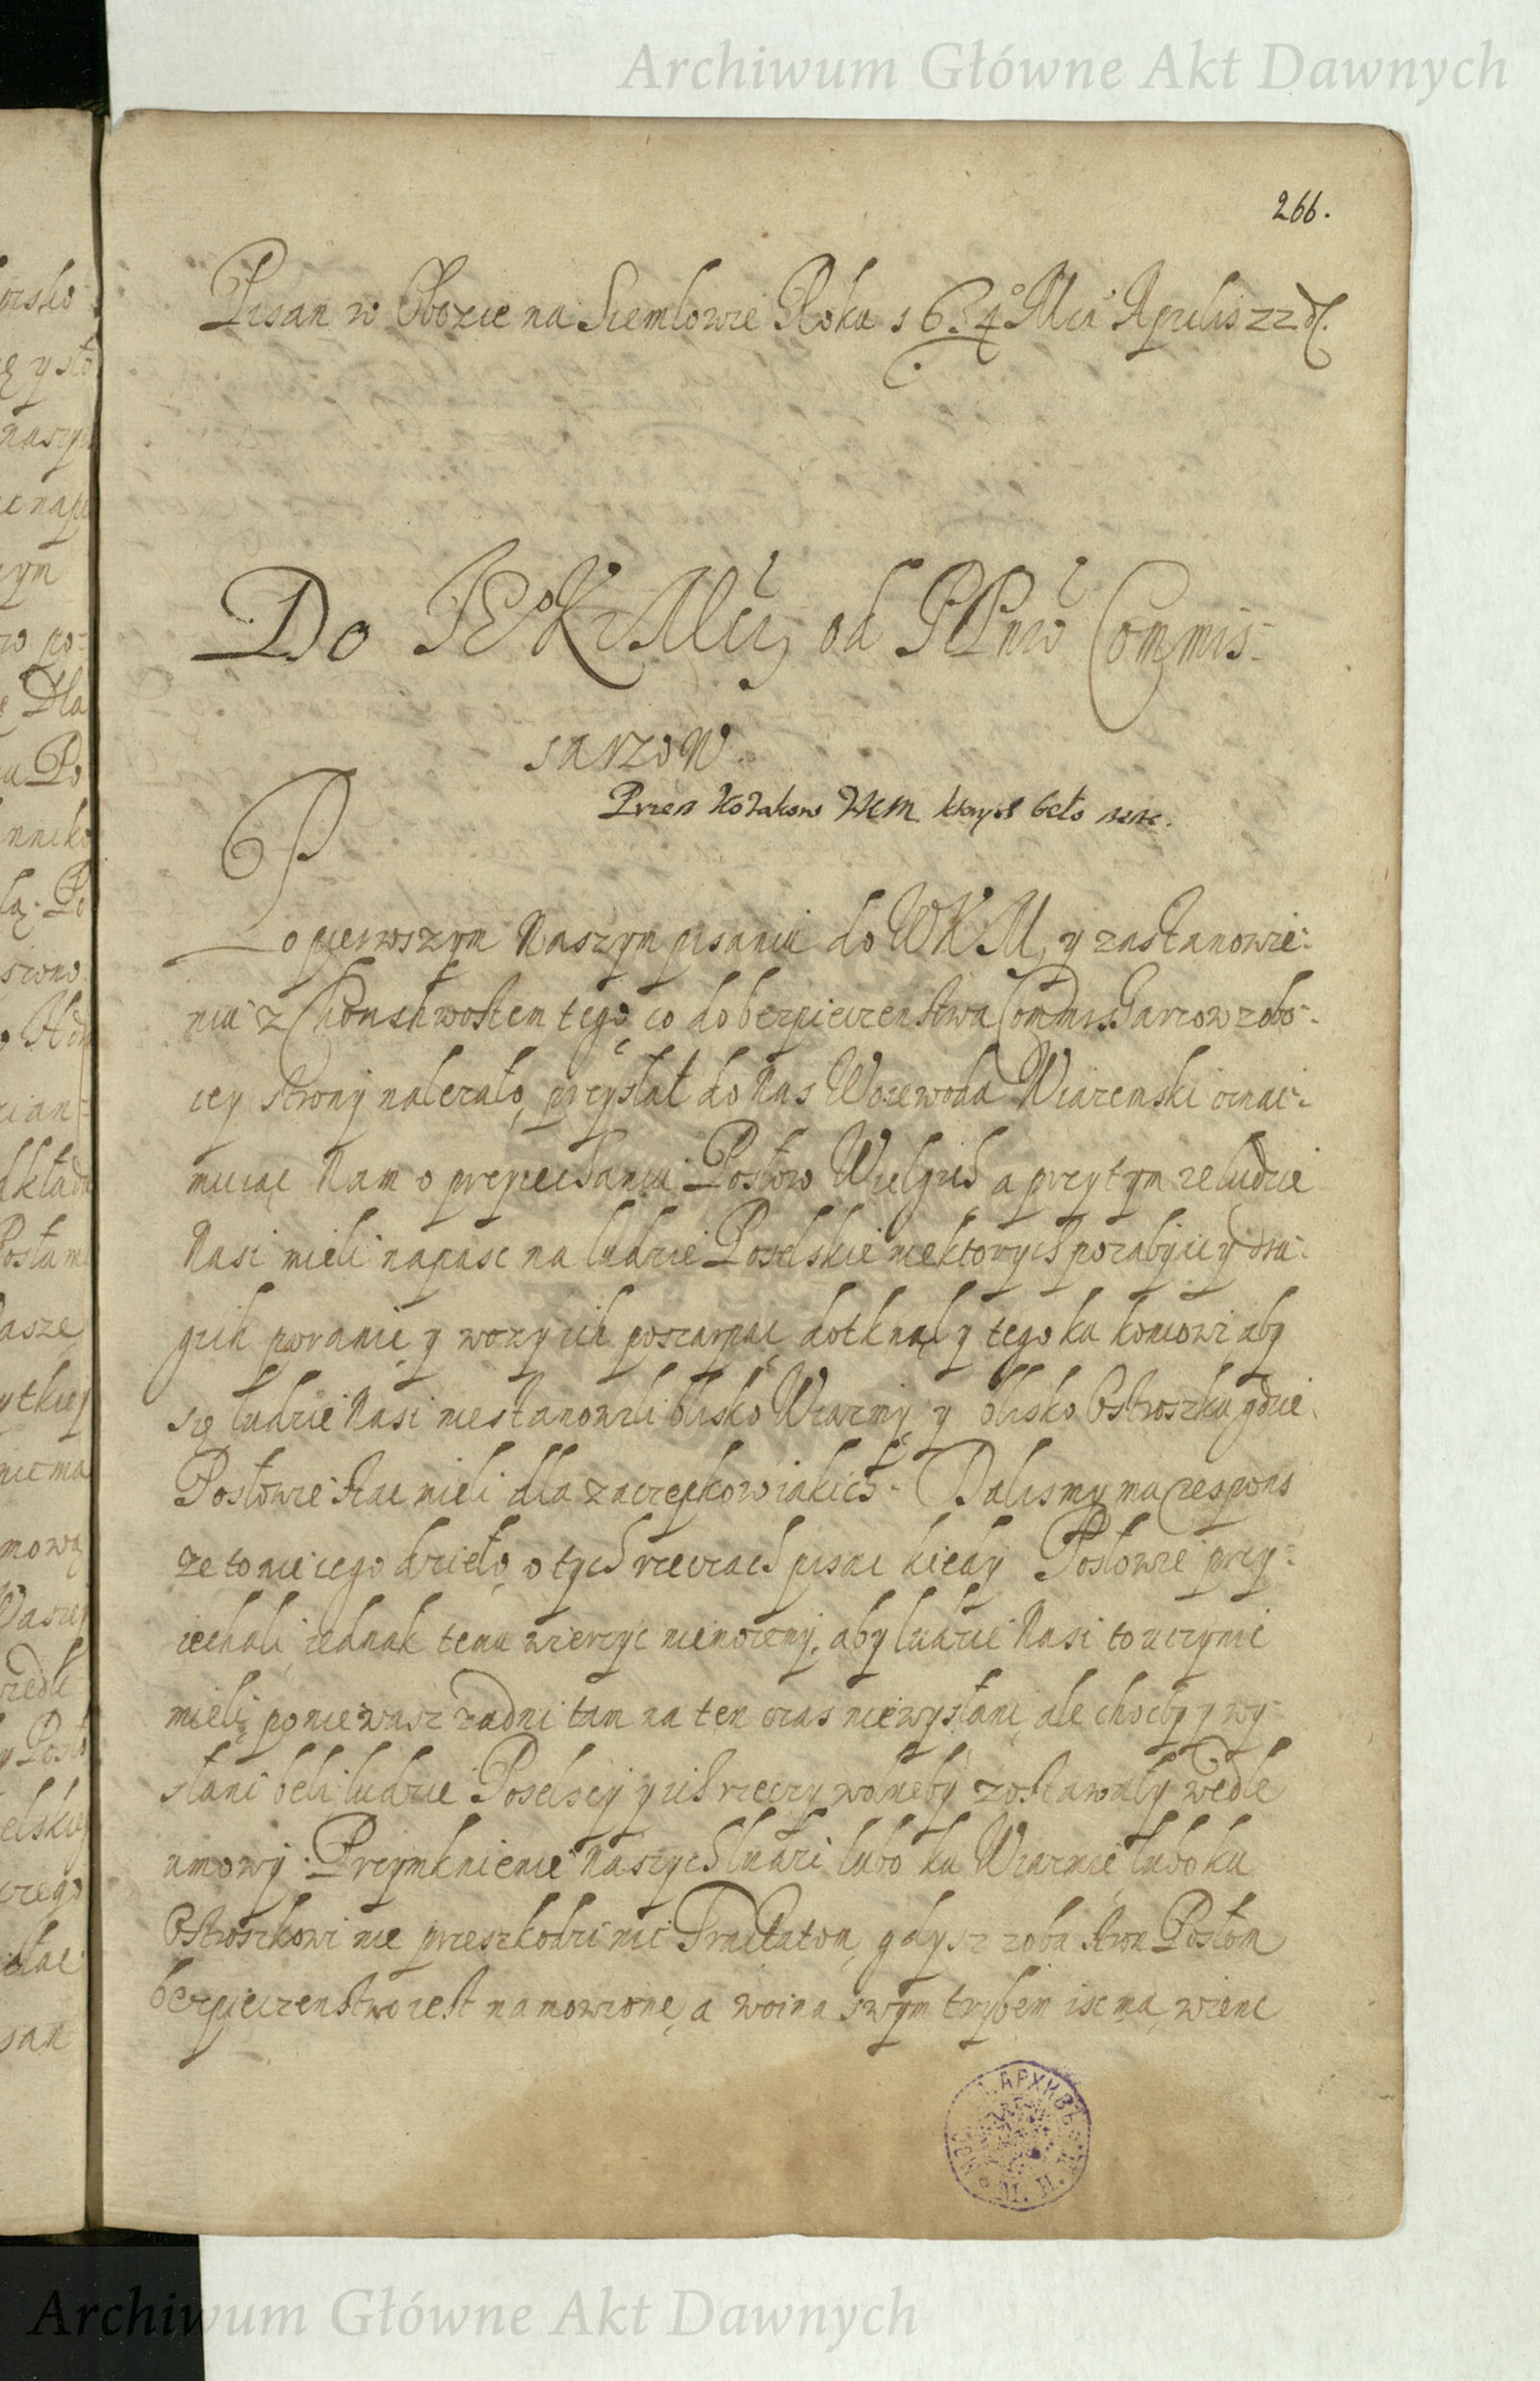 Archiwum Główne Akt Dawnych
266.
Pisan w Obozie na Siemlowie Roku 1634° Mca Aprilis 22 d.
Do JE° Kr Mści od PPnw Commis-
sarzow.
Przes Kozakow WKM ktorych beło
Po pierwszym Naszym pisaniu do WKM, y zastanowie-
niu z Chonskwostem tego, co do bezpieczenstwa Commissarzow z obo-
iey strony nalezało, przysłał do Nas Woiewoda Wiazemski oznai-
muiąc Nam o przyiechaniu Posłow Wielgich a przytym ze ludzie
Nasi mieli napasc na ludzie Poselskie niektorych pozabijac y dru-
gich poranic y wozy ich poszarpac, dotknął y tego ku koncowi aby
się ludzie Nasi niestanowili blisko Wiazmy y blisko Ostroszku gdzie
Posłowie stac mieli dla zaczepkow iakich. Dalismy mu respons
ze to nie iego dzieło, o tych rzeczach pisac kiedy Posłowie przy-
iechali, iednak temu wierzyc niemozemy, aby ludzie Nasi to uczynic
mieli, poniewasz zadni tam na ten czas niewysłani, ale chocby y wy-
słani beli ludzie Poselscy y ich rzeczy wolneby zostawały wedle
umowy. Przymknienie Naszych ludzi lubo ku Wiazmie lubo ku
Ostroszkowi nie przeszkodzi nic Tractatom, gdysz z obu stron Posłom
bezpieczenstwo iest namowione, a woina swym trybem isc ma, wienc
Archiwum Główne Akt Dawnych